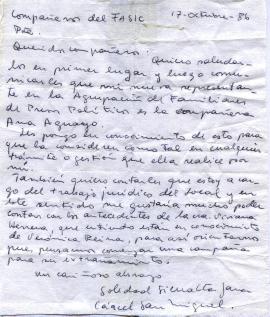 Compañeros del FASIC 17-octubre-86
Pte.
Queridos compañeros:
Quiero saludar-
los en primer lugar y luego comu-
nicarles que mi nueva representan-
te en la Agrupación de Familiares
de Presos Políticos es la compañera
Ana Aguayo.
Les pongo en conocimiento de esto para
que la consideren como tal en cualquier
trámite o gestión que ella realice por
mí.
También quiero contarles que estoy a car-
go del trabajo jurídico del local y en
este sentido me gustaría mucho poder
contar con los antecedentes de la cra. Viviana
Herrera, que entiendo están en conocimiento
de Verónica Reina, para así orientarnos
pues pensamos comenzar una campaña
por su extrañamiento.
Un cariñoso abrazo
Soledad Jara
Cárcel San Miguel.